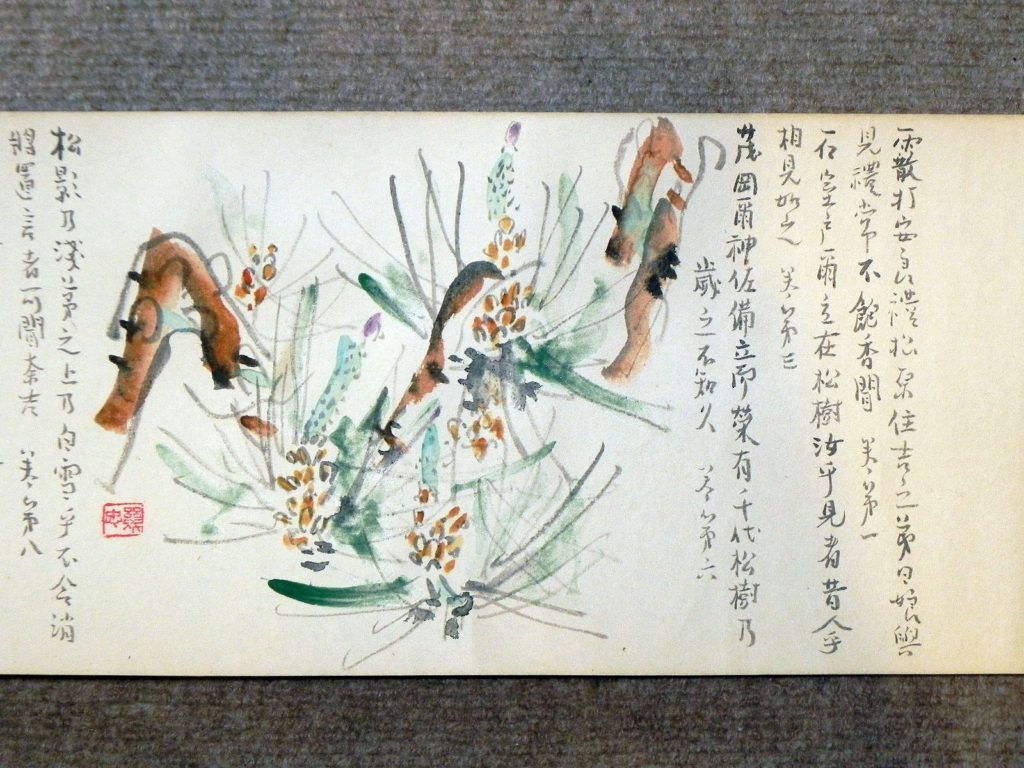 霰打安良禮松原住吉之弟日娘與
見禮常不飽香聞 第一
石室戸爾立在松樹汝乎見者昔人乎
相見如之 第三
茂岡爾神佐備立而榮有千代松樹乃
歳之不知久 第六
松影乃淺茅之上乃白雪乎不令消
將置言者可聞奈吉 第八